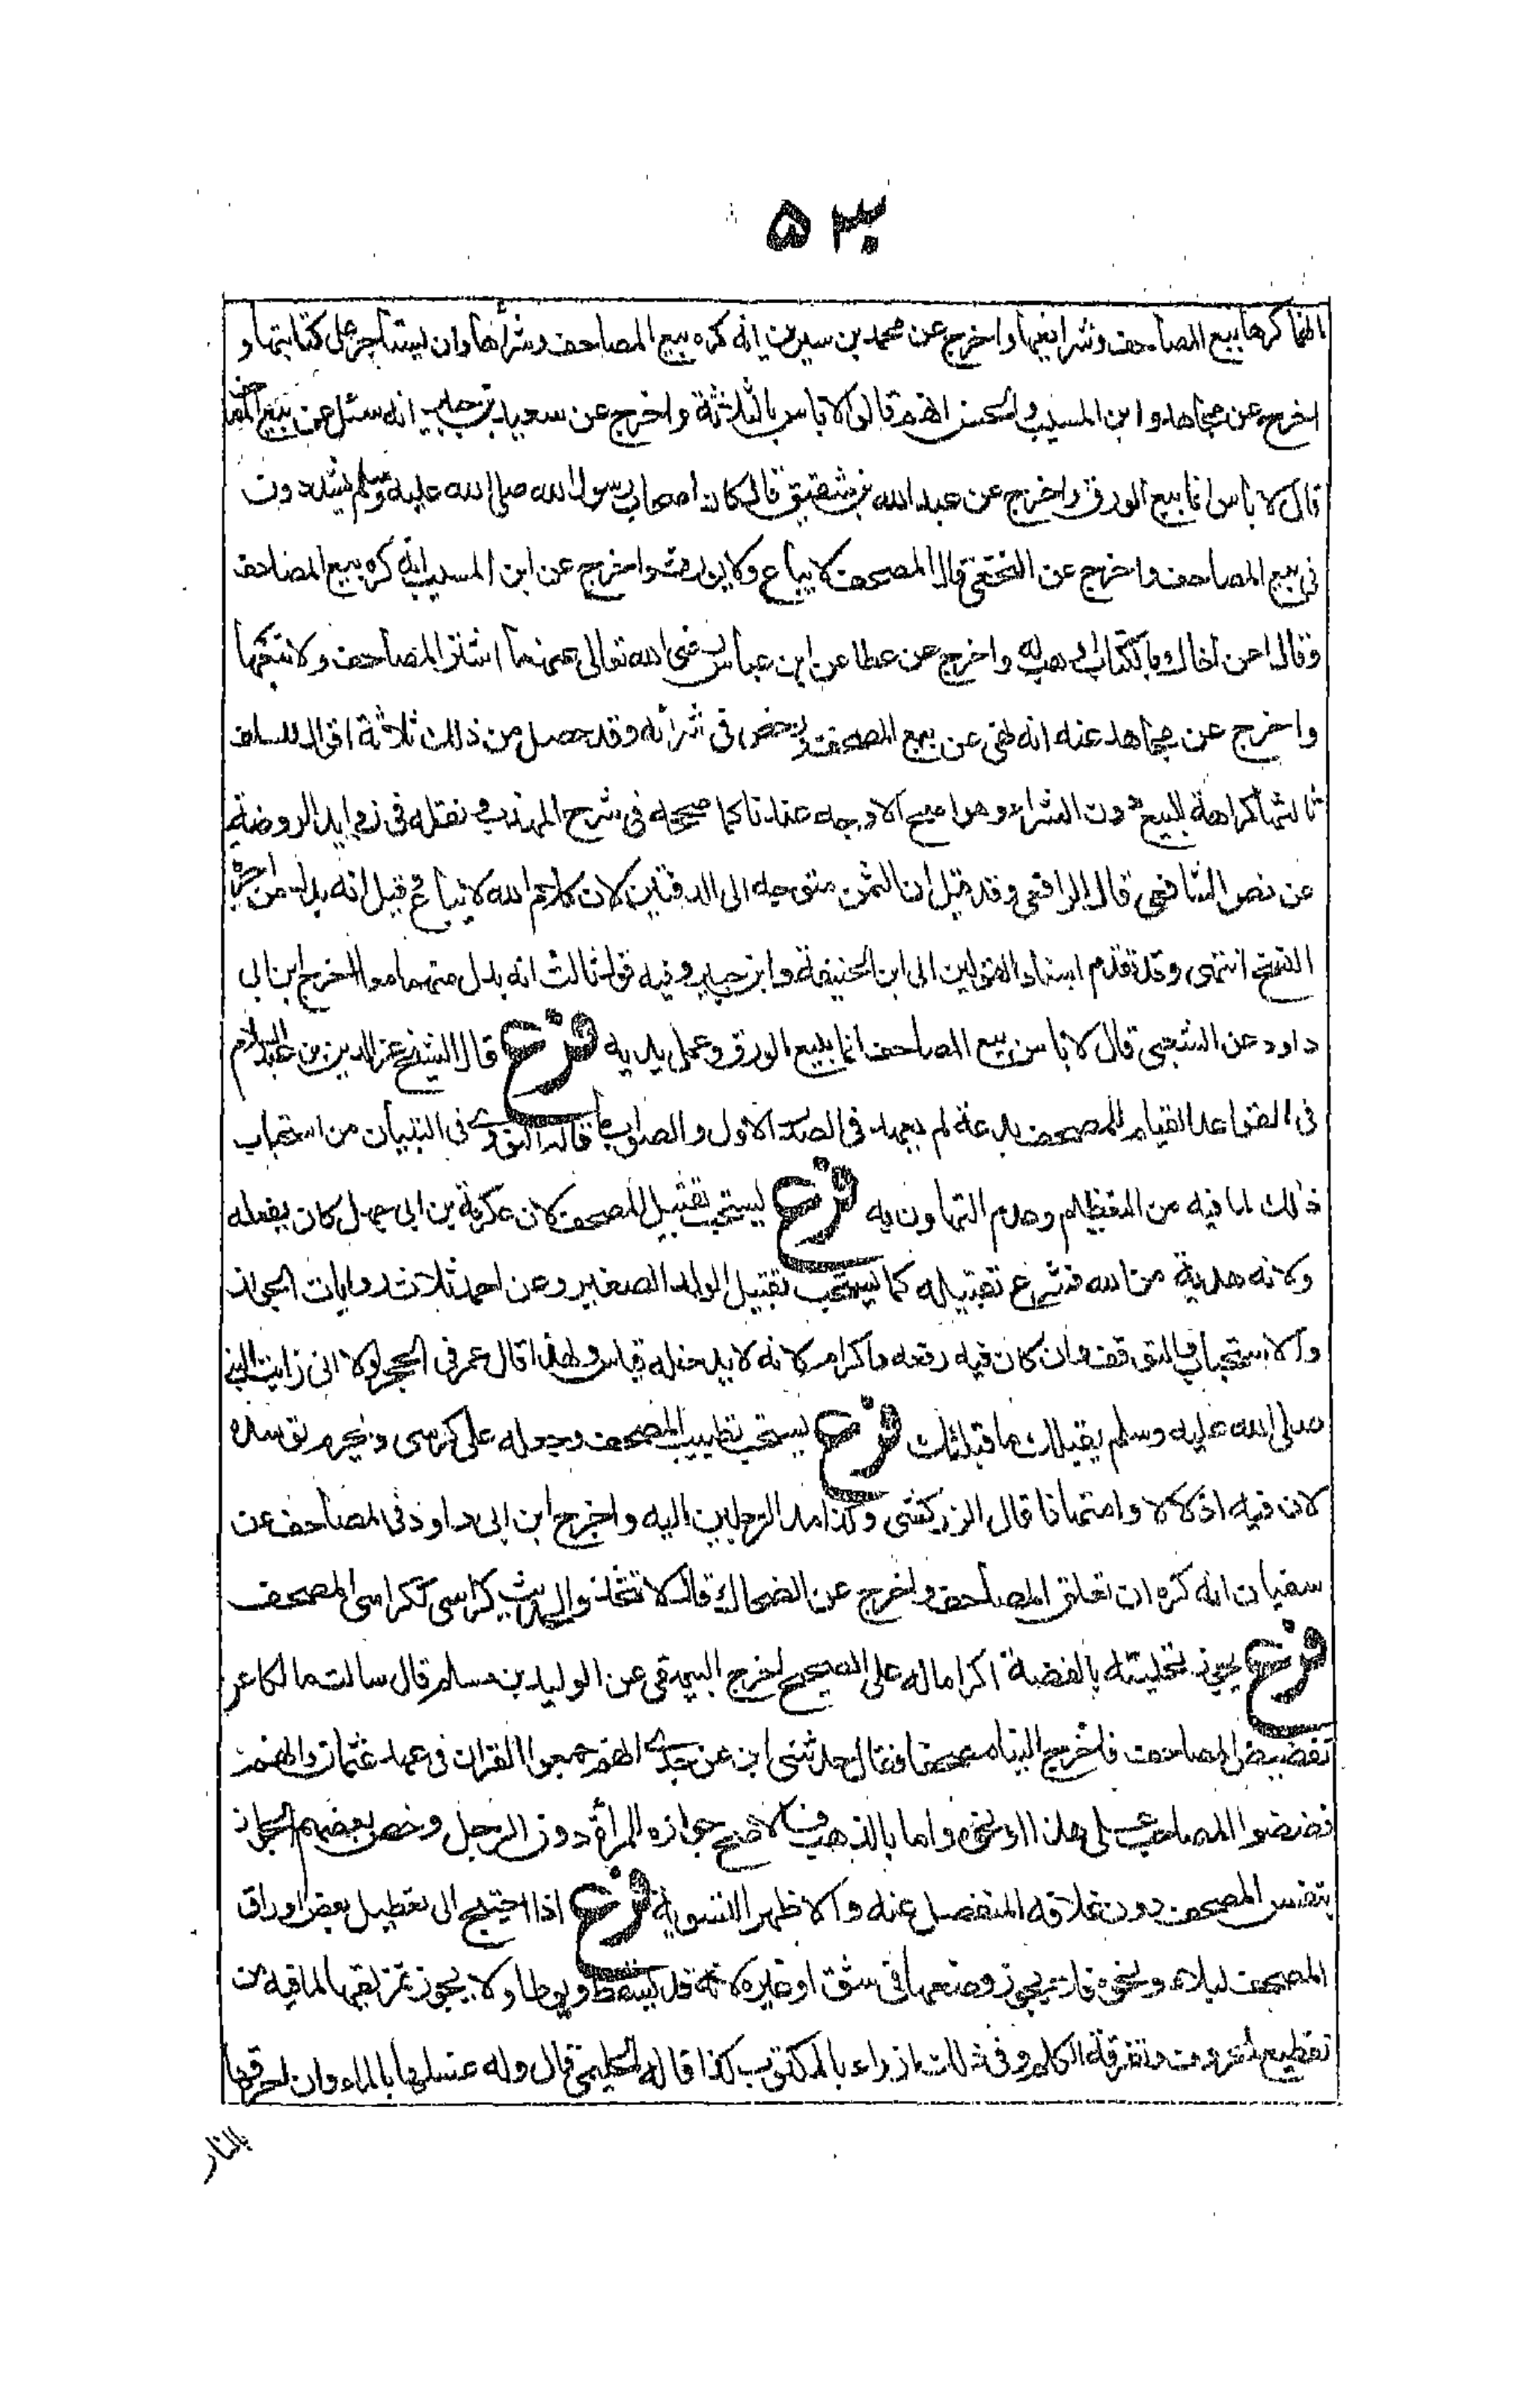 ٥٣٠
انهما كرها بيع المصاحف وشرائها واخرج عن محمد بن سيرين انه كره بيع المصاحف وشرائها وان يستأجر على كتابتها و
اخرج عن مجاهد وابن المسيب والحسن انهم قالوا لا باس بالثلاثة واخرج عن سعيد بن جبير انه سئل عن بيع المصاحف
قال لا باس انما بيع الورق واخرج عن عبد الله بن شقيق قال كان اصحاب رسول الله صلى الله عليه وسلم يشددون
فى بيع المصاحف واخرج عن النخعى قال المصحف لا يباع ولا يورث واخرج عن ابن المسيب انه كره بيع المصاحف
وقال اعن اخاك بالكتاب او هب له واخرج عن عطا عن ابن عباس رضى الله تعالى عنهما اشتر المصاحف ولا تبعها
واخرج عن مجاهد عنه انه نهى عن بيع المصحف ورخص فى شرائه وقد حصل من ذلك ثلاثة اقوال للسلف
ثالثها كراهة البيع دون الشراء وهو اصح الاوجه عندنا كما صححه فى شرح المهذب ونقله فى زوايد الروضة
عن نص الشافعى قال الرافعى وقد قيل ان الثمن متوجه الى الدفتين لان كلام الله لا يباع وقيل انه بدل من اجرة
النسخ انتهى وقد تقدم اسناد القولين الى ابن الحنيفة وابن جبير وفيه قول ثالث انه بدل منهما معا اخرج ابن ابى
داود عن الشعبى قال لا باس ببيع المصاحف انما يبيع الورق وعمل يديه فرع قال الشيخ عز الدين بن عبد السلام
فى القواعد القيام للمصحف بدعة لم يعهد فى الصدر الاول والصواب ما قاله النووى فى التبيان من استحباب
ذلك لما فيه من التعظيم وعدم التهاون به فرع يستحب تقبيل المصحف لان عكرمة بن ابى جهل كان يفعله
ولانه هدية من الله فشرع تقبيله كما يستحب تقبيل الولد الصغير وعن احمد ثلاث روايات الجواز
والاستحباب والتوقف وان كان فيه رفعه واكرام لانه لا يدخله قياس ولهذا قال عمر فى الحجر لولا انى رايت النبى
صلى الله عليه وسلم يقبلك ما قبلتك فرع يستحب تطييب المصحف وجعله على كرسى ويحرم توسده
لان فيه اذلالا وامتهانا قال الزركشى وكذا مد الرجلين اليه واخرج ابن ابى داود فى المصاحف عن
سفيان انه كره ان تعلق المصاحف واخرج عن الضحاك قال لا تتخذوا للحديث كراسى ككراسى المصحف
فرع يجوز تحليته بالفضة اكراما له على الصحيح اخرج البيهقى عن الوليد بن مسلم قال سالت مالكا عن
تفضيض المصاحف فاخرج الينا مصحفا فقال حدثنى ابى عن جدى انهم جمعوا القران فى عهد عثمان وانهم
فضضوا المصاحف على هذا او نحوه واما بالذهب فالاصح جوازه للمرأة دون الرجل وخص بعضهم الجواز
بنفس المصحف دون غلافه المنفصل عنه والاظهر التسوية فرع اذا احتيج الى تعطيل بعض اوراق
المصحف لبلاء ونحوه فلا يجوز وضعها فى شق او غيره لانه قد يسقط ويوطا ولا يجوز تمزيقها لما فيه من
تقطيع الحروف وتفرقة الكلم وفى ذلك ازراء بالمكتوب كذا قاله الحليمى قال وله غسلها بالماء وان احرقها
بالنار